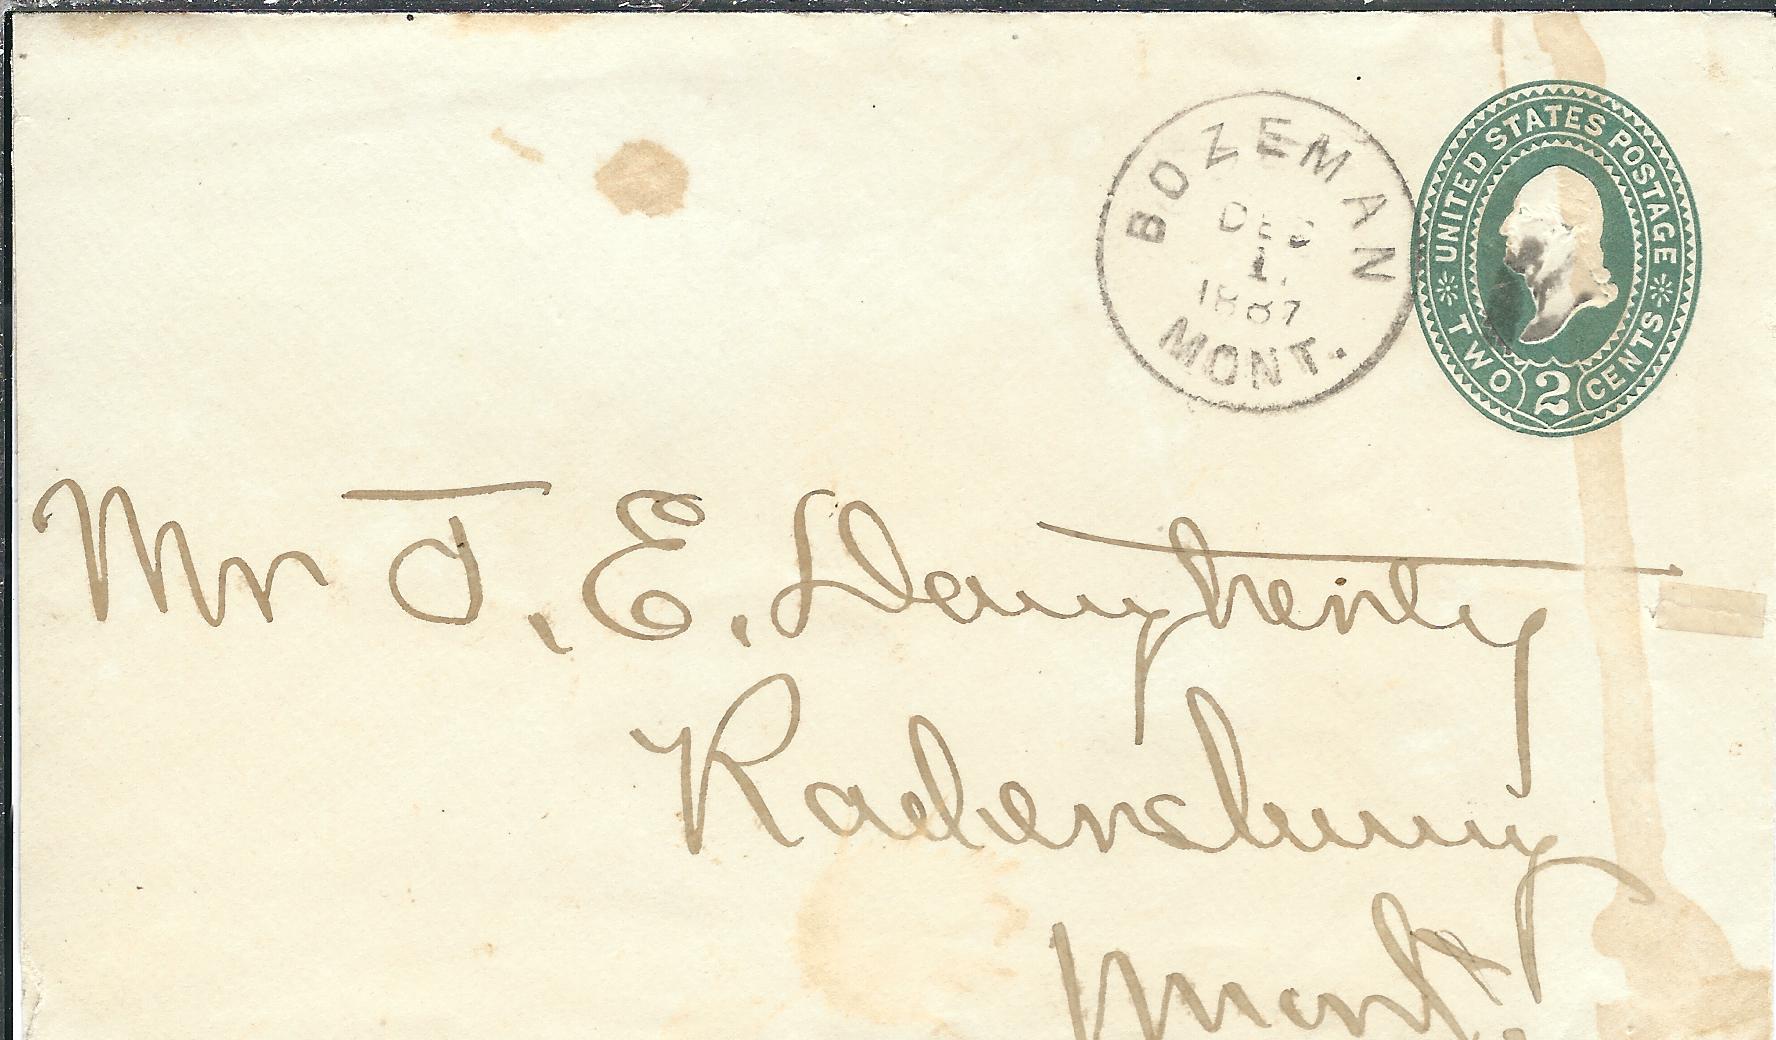 BOZEMAN
DEC
1.
1887
MONT.
UNITED STATES POSTAGE
TWO 2 CENTS
Mr J. E. Daugherty
Radersburg
Mont.